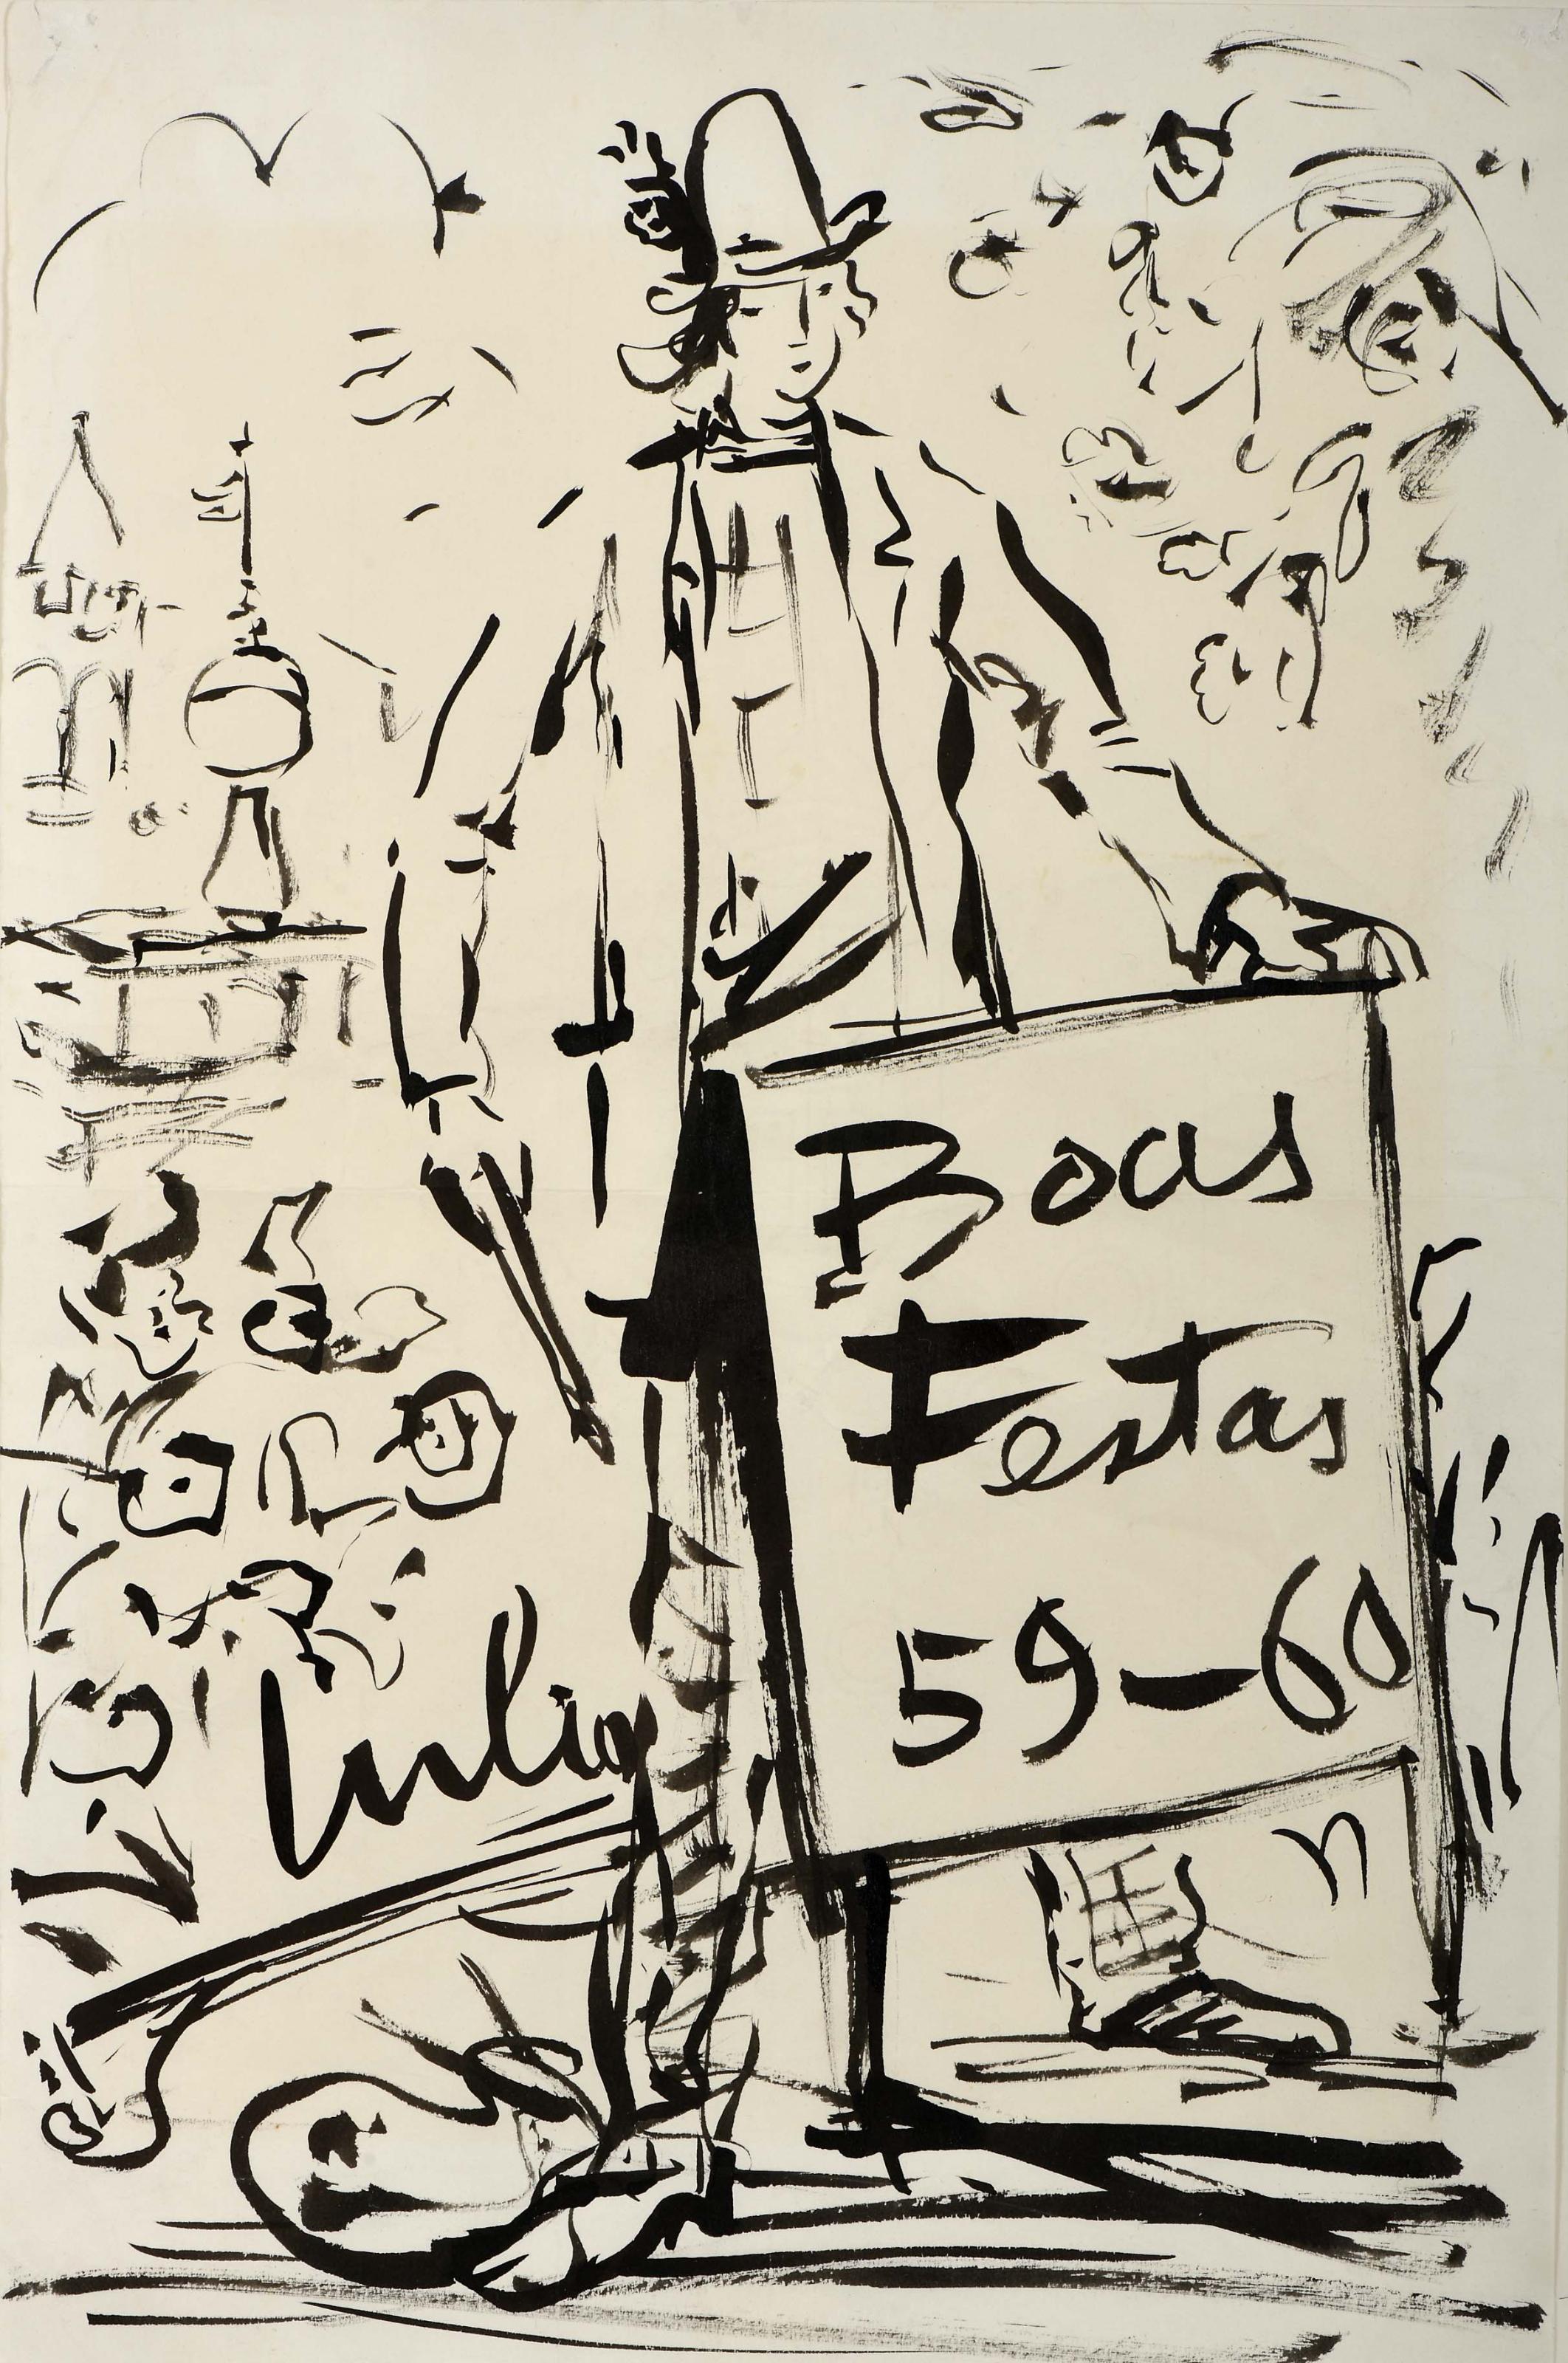 Boas
Festas
59-60
Julio